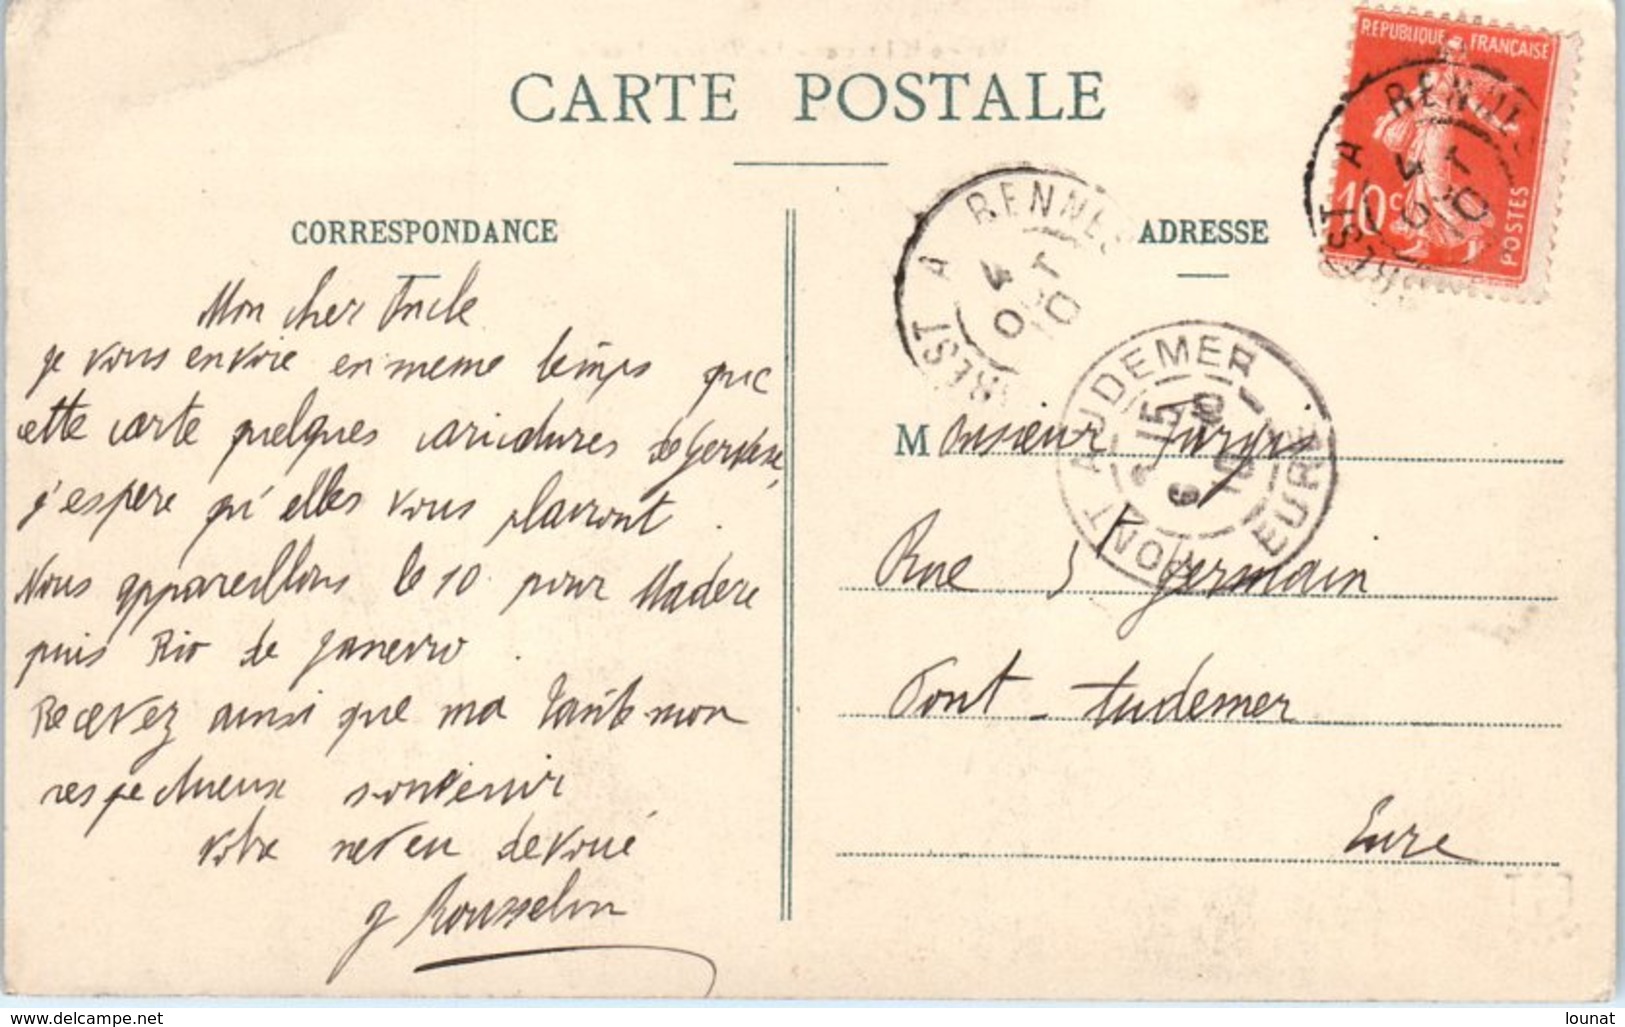 CARTE POSTALE
CORRESPONDANCE
Mon cher Oncle
je vous envoie en meme temps que
cette carte quelques caricatures de Gervèse,
j'espere qu'elles vous plairont.
Nous appareillons le 10 pour Madere
puis Rio de Janeiro.
Recevez ainsi que ma tante mon
respectueux souvenir
votre neveu devoué
J Rousselin
ADRESSE
Monsieur
Rue St Germain
Pont-Audemer
Eure
REPUBLIQUE FRANÇAISE
10c
POSTES
BREST A RENNES
4 OCT 10
BREST A RENNES
4 OCT 10
PONT AUDEMER
EURE
www.delcampe.net
lounat